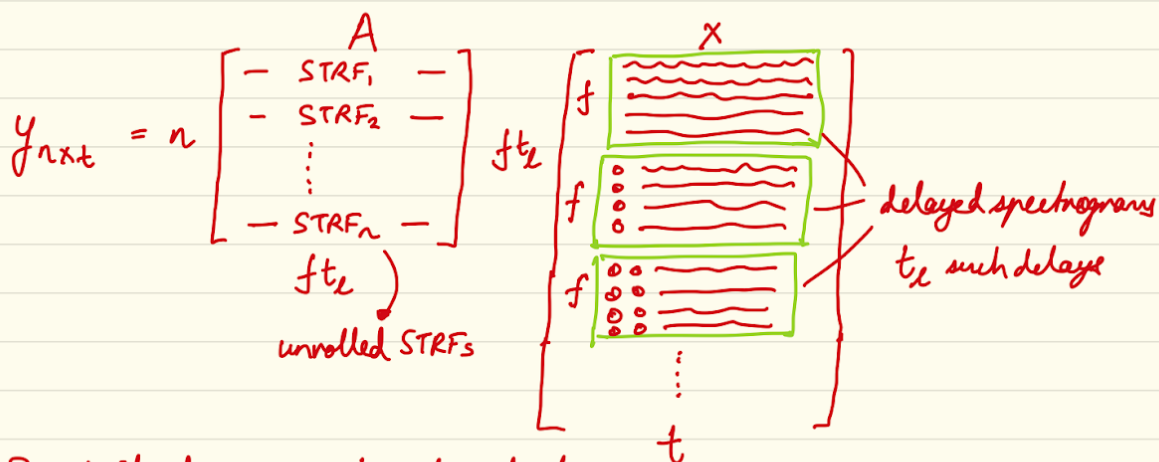 A
x
y n×t = n [ — STRF₁ —
- STRF₂ —
— STRFₙ — ]
ft_ℓ
unrolled STRFs
ft_ℓ
f
f
f
t
delayed spectrograms
t_ℓ such delays